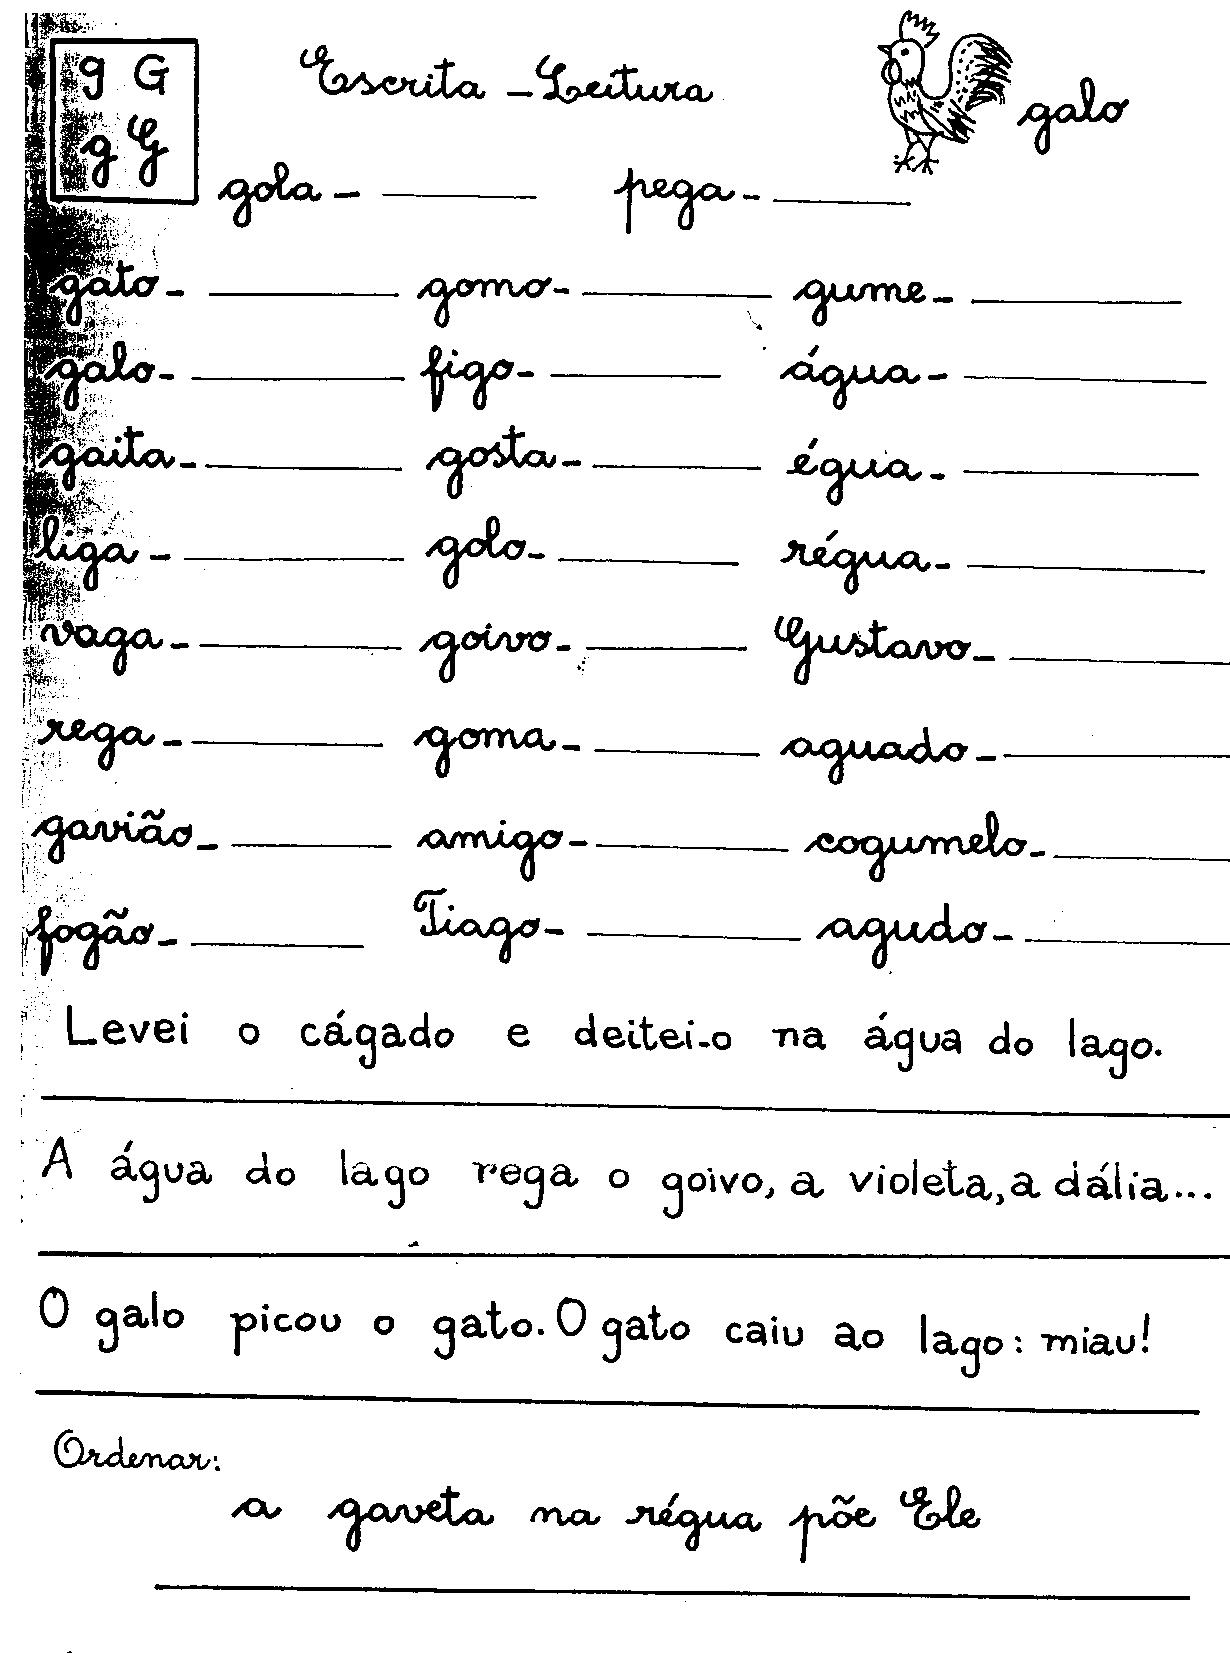 g G Escrita - Leitura galo
g G
gola - pega -
gato - gomo - gume -
galo - figo - água -
gaita - gosta - égua -
liga - golo - régua -
vaga - goivo - Gustavo -
rega - goma - aguado -
gavião - amigo - cogumelo -
fogão - Tiago - agudo -
Levei o cágado e deitei-o na água do lago.
A água do lago rega o goivo, a violeta, a dália...
O galo picou o gato. O gato caiu ao lago: miau!
Ordenar:
a gaveta na régua põe Ele